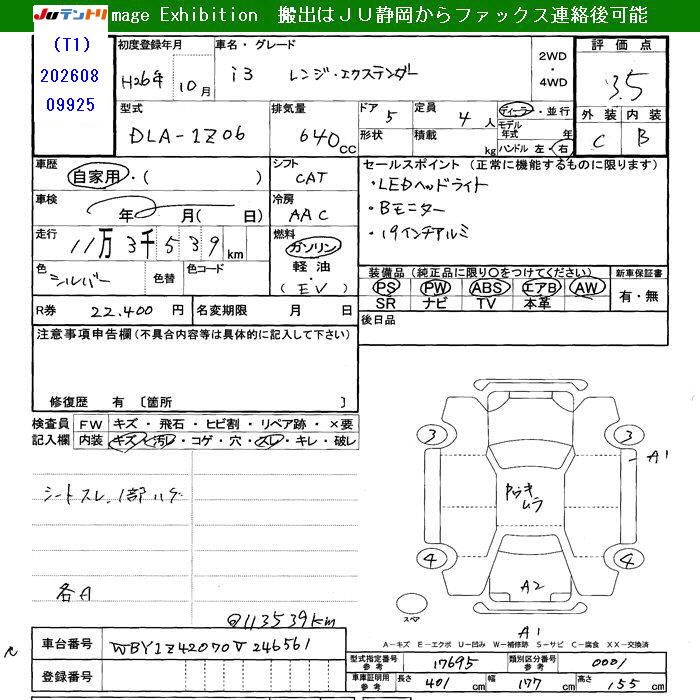 JUテントリ mage Exhibition 搬出はＪＵ静岡からファックス連絡後可能
(T1)
202608
09925
初度登録年月
H26年 10月
車名・グレード
i3 レンジ・エクステンダー
2WD
・
4WD
評価点
3.5
外装 内装
C B
型式
DLA-1Z06
排気量
640cc
ドア 5
形状
定員 4人
積載 kg
ディーラー・並行
モデル年式 年
ハンドル 左・右
車歴
自家用・( )
シフト
CAT
セールスポイント (正常に機能するものに限ります)
・LEDヘッドライト
・Bモニター
・19インチアルミ
車検
年 月( 日)
冷房
AAC
走行
11万3千539km
燃料
ガソリン
・
軽油
(EV)
色
シルバー
色替
色コード
装備品 (純正品に限り○をつけてください)
PS PW ABS エアB AW
SR ナビ TV 本革
新車保証書
有・無
R券 22.400円
名変期限 月 日
後日品
注意事項申告欄 (不具合内容等は具体的に記入して下さい)
修復歴 有 〔箇所 〕
検査員記入欄
FW キズ・飛石・ヒビ割・リペア跡・×要
内装 キズ・汚レ・コゲ・穴・スレ・キレ・破レ
シートスレ、1部ハゲ
各A
@113539km
3
3
A1
4
4
ムラ
A2
スペア
A1
A－キズ E－エクボ U－凹み W－補修跡 S－サビ C－腐食 XX－交換済
車台番号
WBY1Z42070V246561
登録番号
型式指定番号 参考 17695
類別区分番号 参考 0001
車庫証明用 参考 長さ 401cm 幅 177cm 高さ 155cm